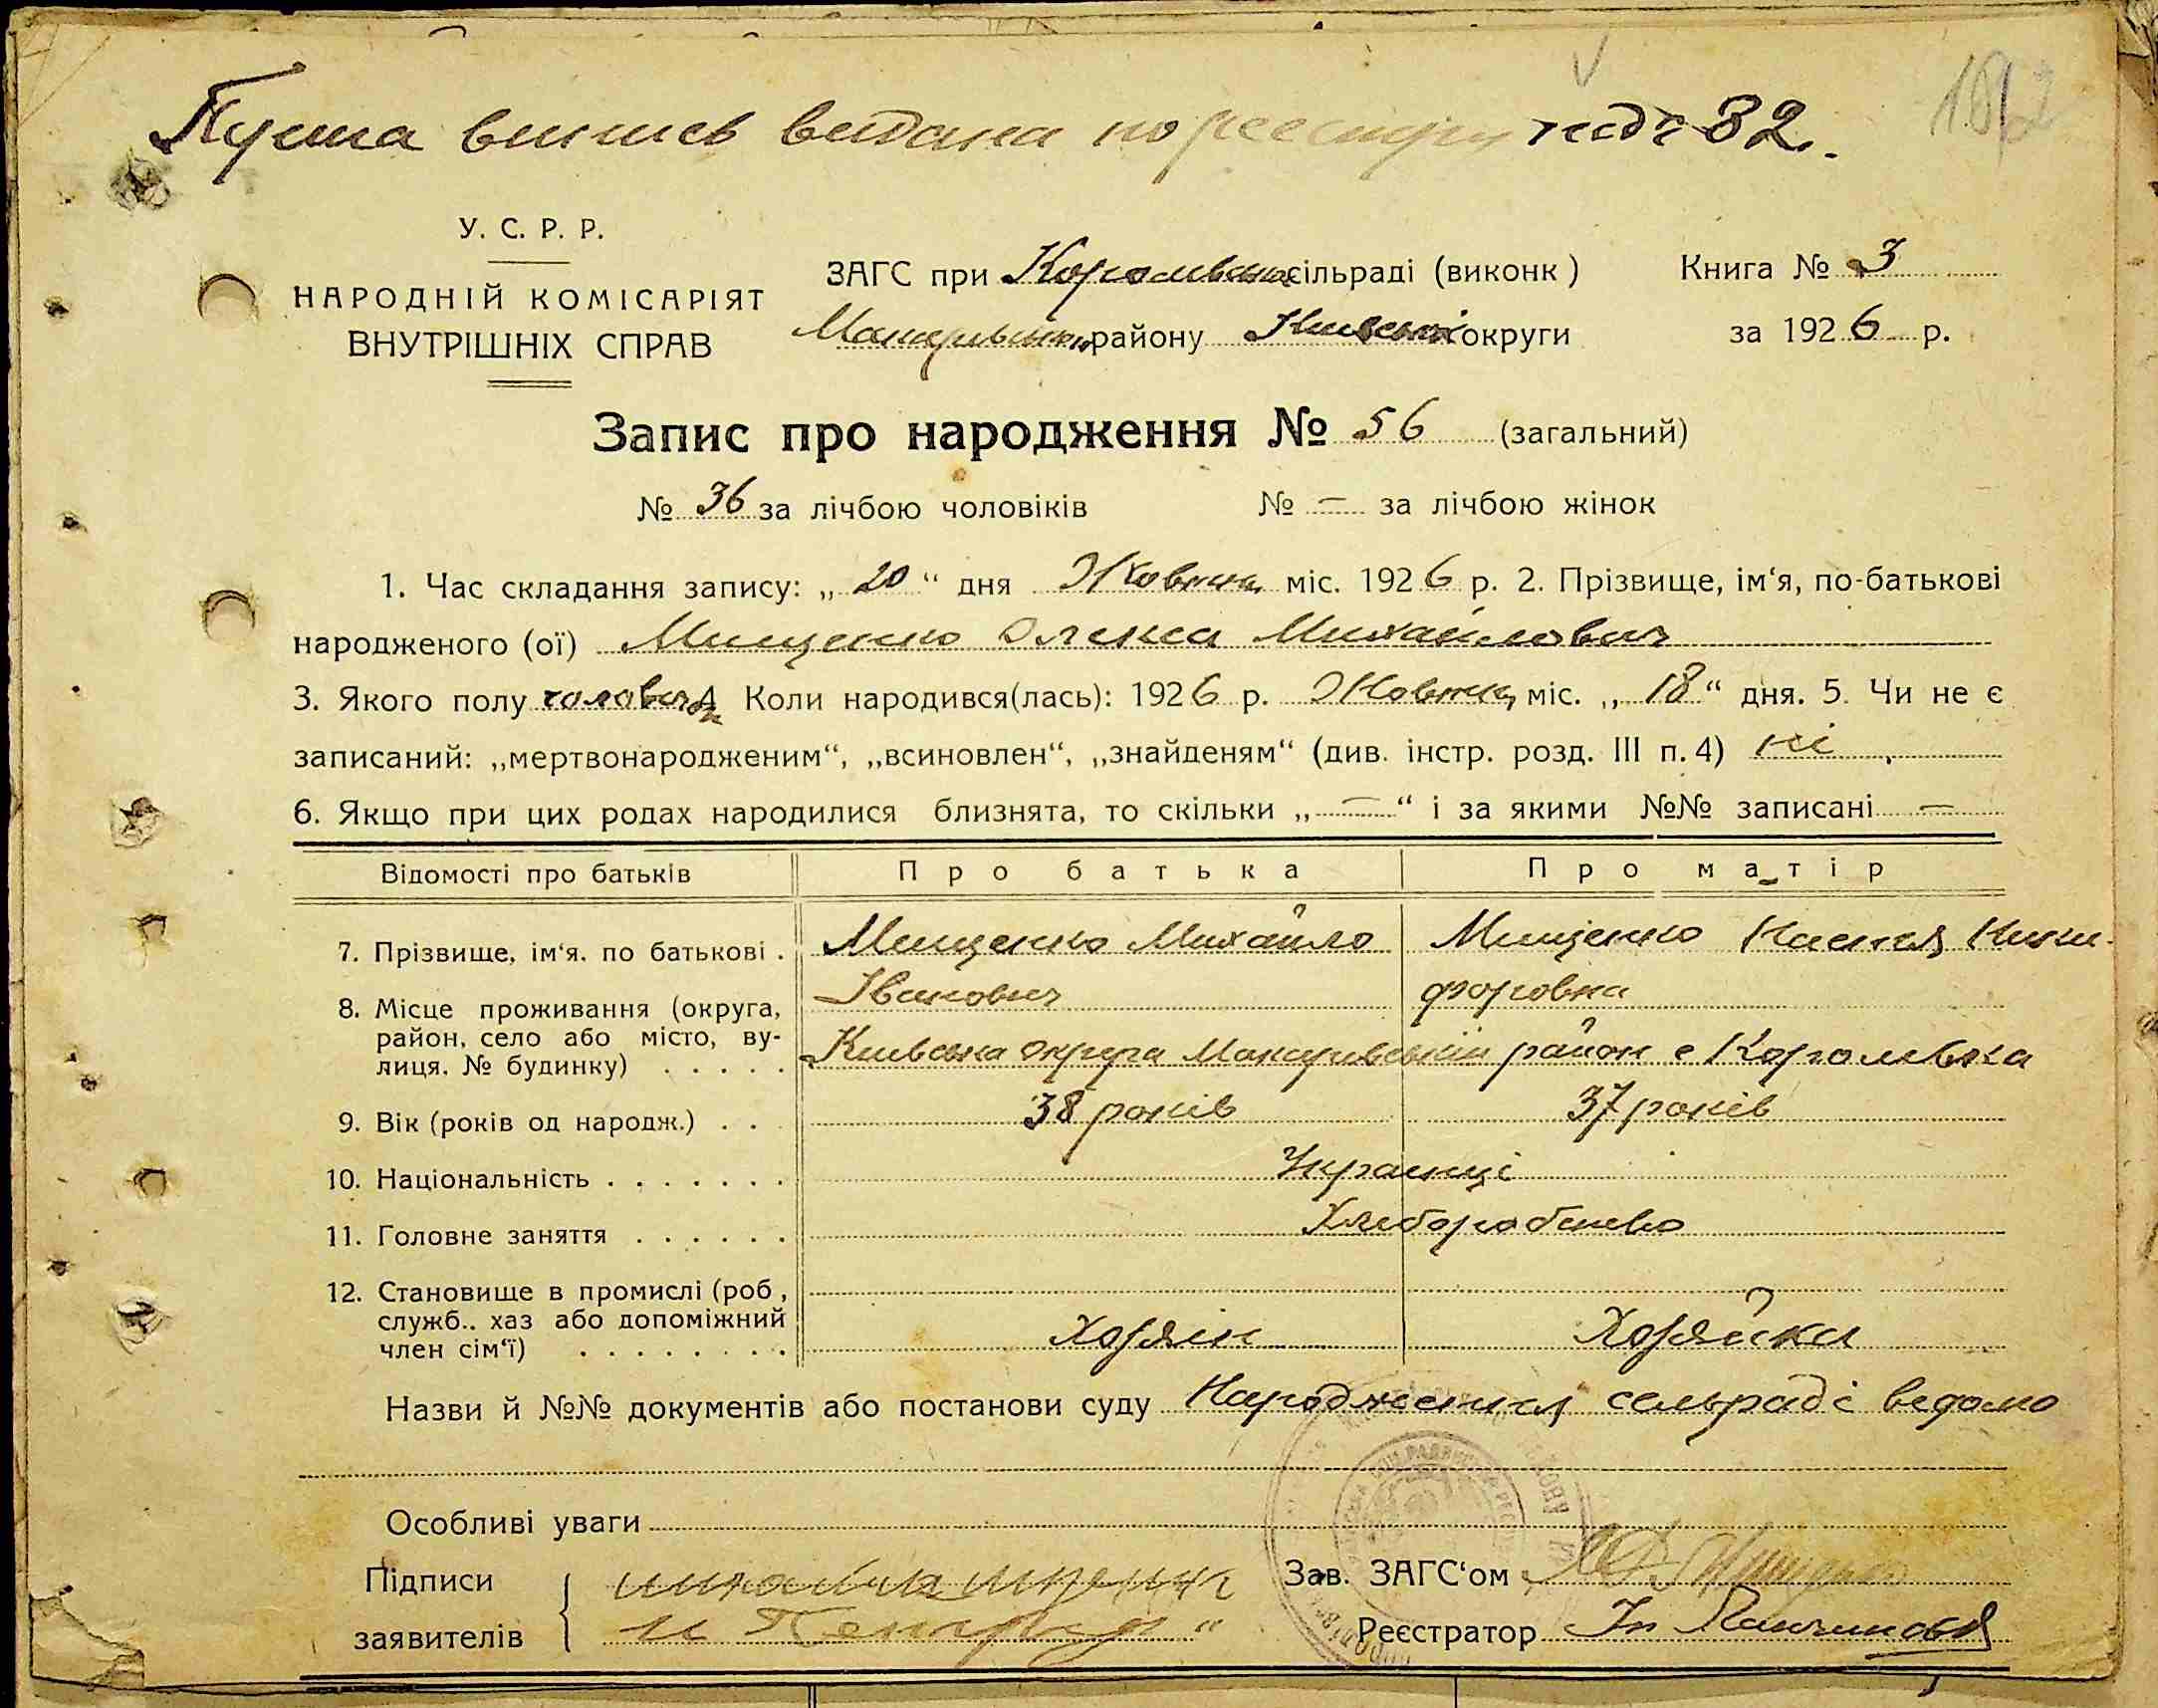 випись видана по реєстру 32.
У. С. Р. Р.
НАРОДНІЙ КОМІСАРІЯТ
ВНУТРІШНІХ СПРАВ
ЗАГС при Королівські сільраді (виконк)
Макарівськ району Київської округи
Книга № 3
за 1926 р.
Запис про народження № 56 (загальний)
№ 36 за лічбою чоловіків № — за лічбою жінок
1. Час складання запису: „20“ дня Жовтня міс. 1926 р. 2. Прізвище, ім‘я, по-батькові
народженого (ої) Мищенко Олекса Михайлович
3. Якого полу чоловічої 4 Коли народився(лась): 1926 р. Жовтня міс. „18“ дня. 5. Чи не є
записаний: „мертвонародженим“, „всиновлен“, „знайденям“ (див. інстр. розд. III п. 4) ні
6. Якщо при цих родах народилися близнята, то скільки „—“ і за якими №№ записані —
Відомості про батьків Про батька Про матір
7. Прізвище, ім‘я, по батькові . Мищенко Михайло Мищенко Настя Ники-
Іванович форовна
8. Місце проживання (округа,
район, село або місто, ву-
лиця, № будинку) . . . . . Київська округа Макарівський район с Королівка
9. Вік (років од народж.) . . 38 років 37 років
10. Національність . . . . . . . Українці
11. Головне заняття . . . . . . Хліборобство
12. Становище в промислі (роб ,
служб.. хаз або допоміжний
член сім‘ї) . . . . . . . . Хозяін Хозяйка
Назви й №№ документів або постанови суду Народження сельраді ведомо
Особливі уваги
Підписи
заявителів
Зав. ЗАГС‘ом
Реєстратор